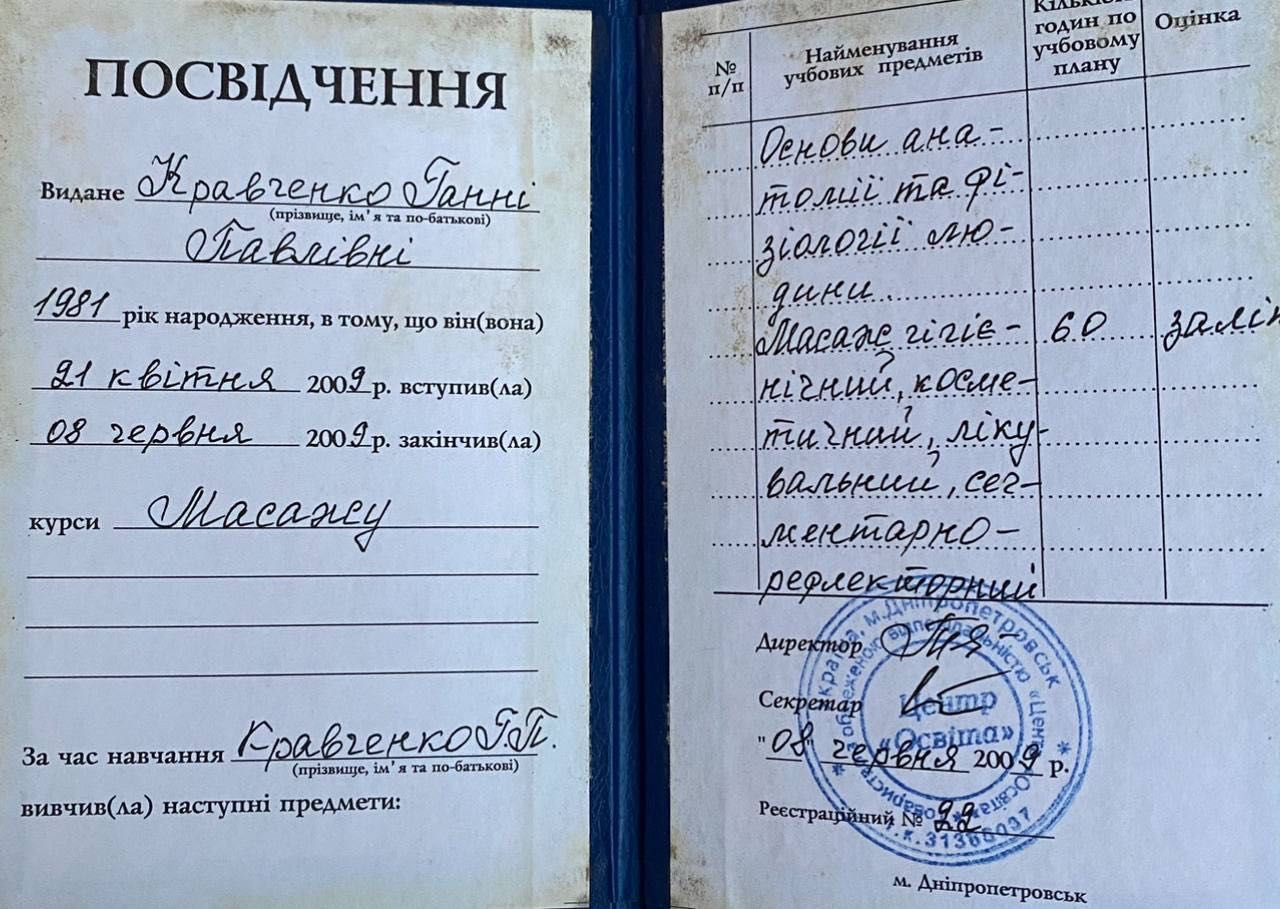 ПОСВІДЧЕННЯ
Видане Кравченко Ганні
(прізвище, ім'я та по-батькові)
Павлівні
1981 рік народження, в тому, що він(вона)
21 квітня 2009 р. вступив(ла)
08 червня 2009 р. закінчив(ла)
курси Масажу
За час навчання Кравченко Г.П.
(прізвище, ім'я та по-батькові)
вивчив(ла) наступні предмети:
№ п/п
Найменування учбових предметів
годин по учбовому плану
Оцінка
Основи ана-
томії та фі-
зіології лю-
дини
Масаж гігіє- 60
нічний, косме-
тичний, ліку-
вальний, сег-
ментарно-
рефлекторний
Директор
Секретар
"08" червня 2009 р.
Реєстраційний № 22
м. Дніпропетровськ
м.Дніпропетровськ
Центр
«Освіта»